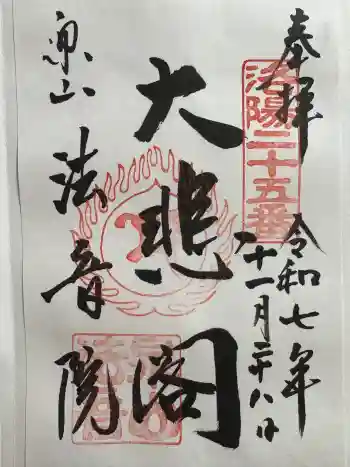 奉拝
洛陽二十五番
令和七年
十一月二十八日
大悲閣
泉山
法音院